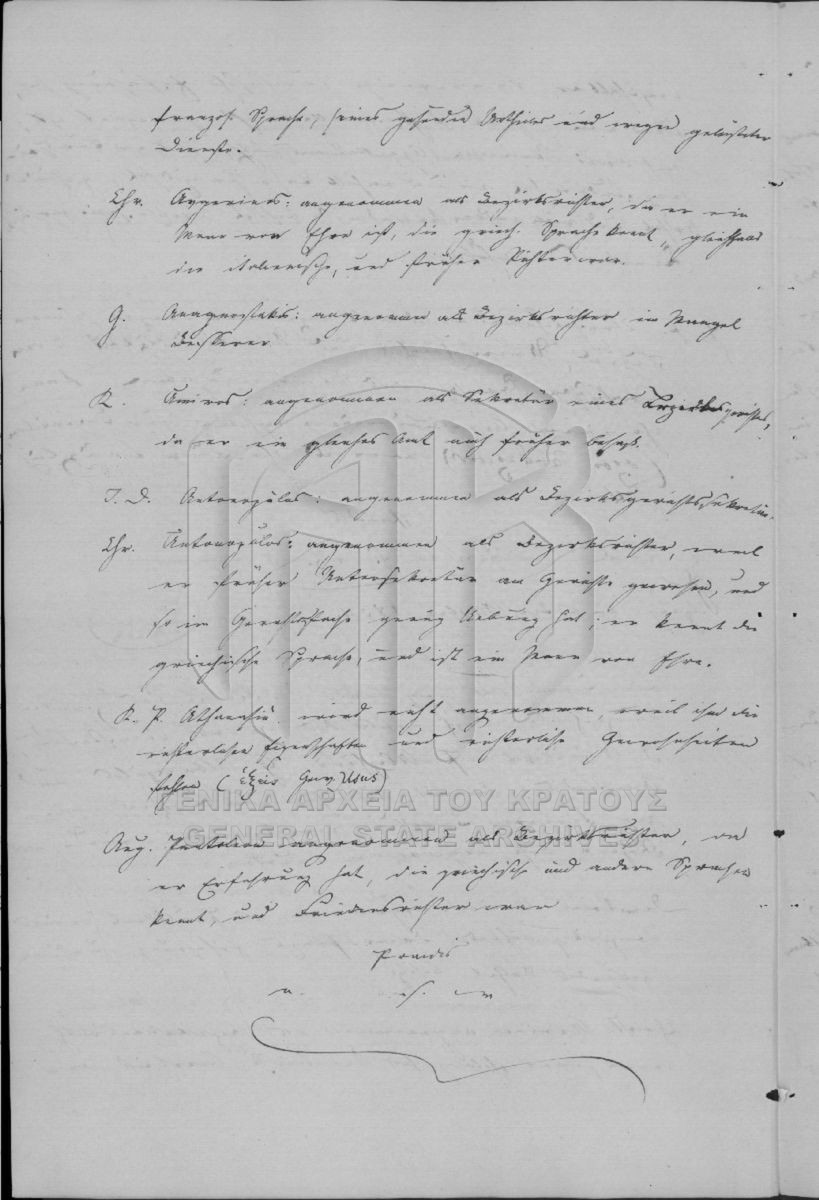 französ. Sprache, seines gesunden Urtheiles und wegen geleisteter
Dienste.
Chr. Avgerinos: angenommen als Bezirksrichter, da er ein
Mann von Ehre ist, die griech. Sprache kennt, gleichfalls
die italienische, und früher Richter war.
G. Anagnostakis: angenommen als Bezirksrichter im Mangel
Besserer
K. Amiros: angenommen als Sekretär eines Bezirksgerichtes,
da er ein gleiches Amt auch früher besaß.
J. D. Antonopulos: angenommen als Bezirksgerichtssekretär.
Chr. Antonopulos: angenommen als Bezirksrichter, weil
er früher Untersekretär am Gerichte gewesen, und
so im Gerichtsfache genug Uebung hat; er kennt die
griechische Sprache, und ist ein Mann von Ehre.
K. P. Athanasiu wird nicht angenommen, weil ihm die
richterlichen Eigenschaften und richterliche Gewohnheiten
fehlen (ἕξεις Usus)
Aug. Pantoleon angenommen als Bezirksrichter, da
er Erfahrung hat, die griechische und andere Sprachen
kennt, und Friedensrichter war
ΓΕΝΙΚΑ ΑΡΧΕΙΑ ΤΟΥ ΚΡΑΤΟΥΣ
GENERAL STATE ARCHIVES